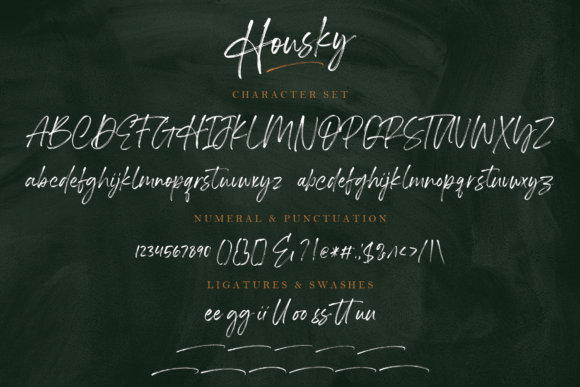 Housky
CHARACTER SET
ABCDEFGHIJKLMNOPQRSTUVWXYZ
abcdefghijklmnopqrstuvwxyz abcdefghijklmnopqrstuvwxyz
NUMERAL & PUNCTUATION
1234567890 ()[]{} & ?!@*#.,:;$^<>/|\
LIGATURES & SWASHES
ee gg ii ll oo ss tt uu